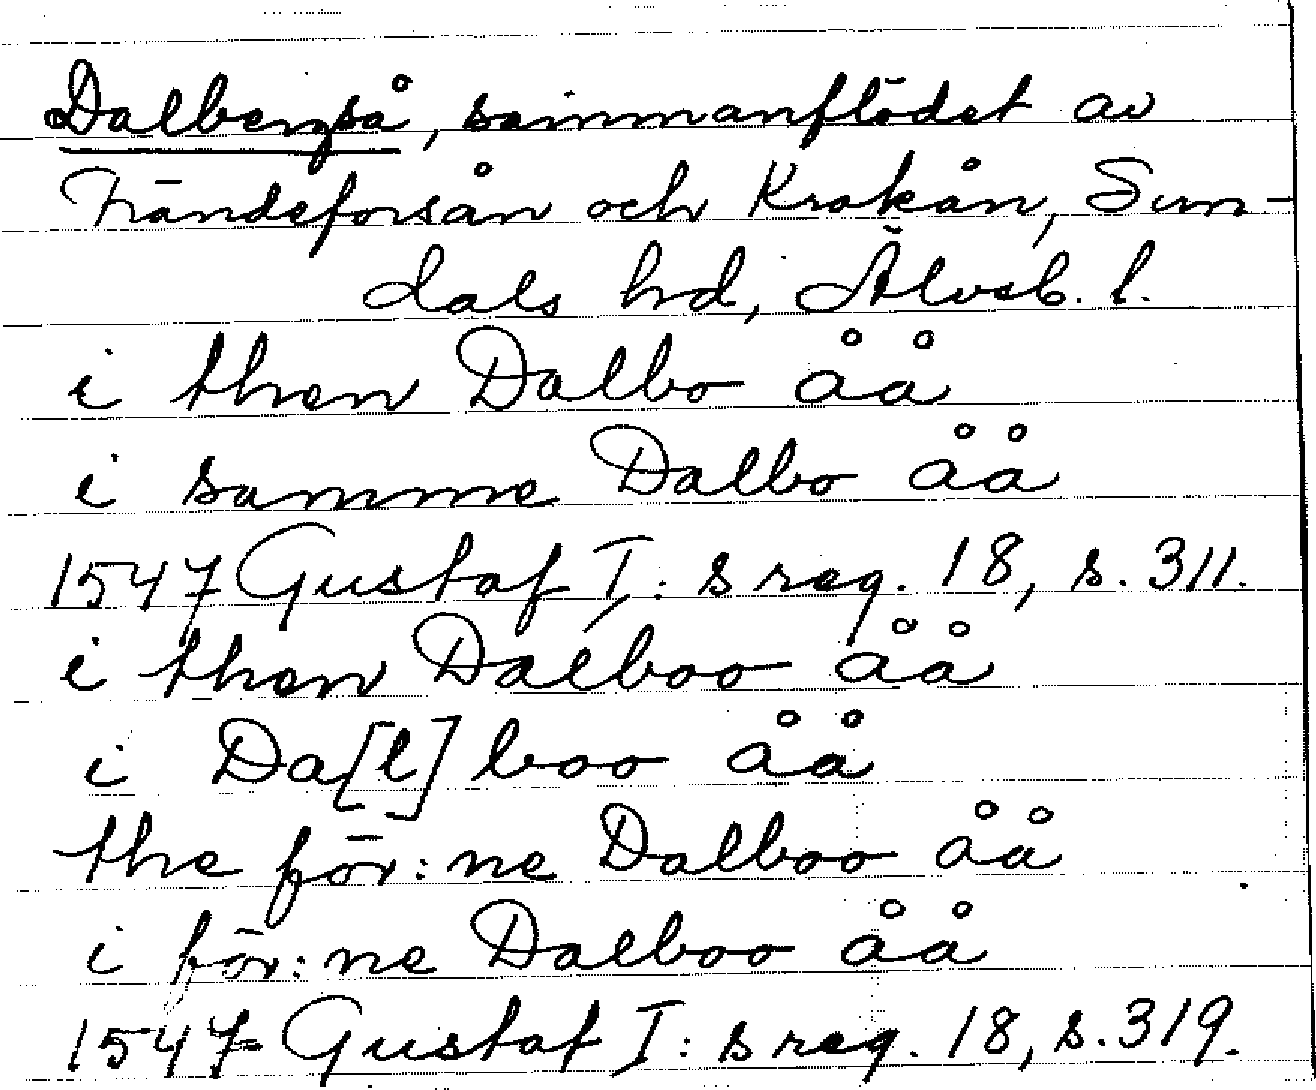 Dalbergså, sammanflödet av
Frändeforsån och Krokån, Sun-
dals hd, Älvsb. l.
i then Dalbo åå
i samme Dalbo åå
1547 Gustaf I:s reg. 18, s. 311.
i then Dalboo åå
i Da[l]boo åå
the för:ne Dalboo åå
i för:ne Dalboo åå
1547 Gustaf I:s reg. 18, s. 319.